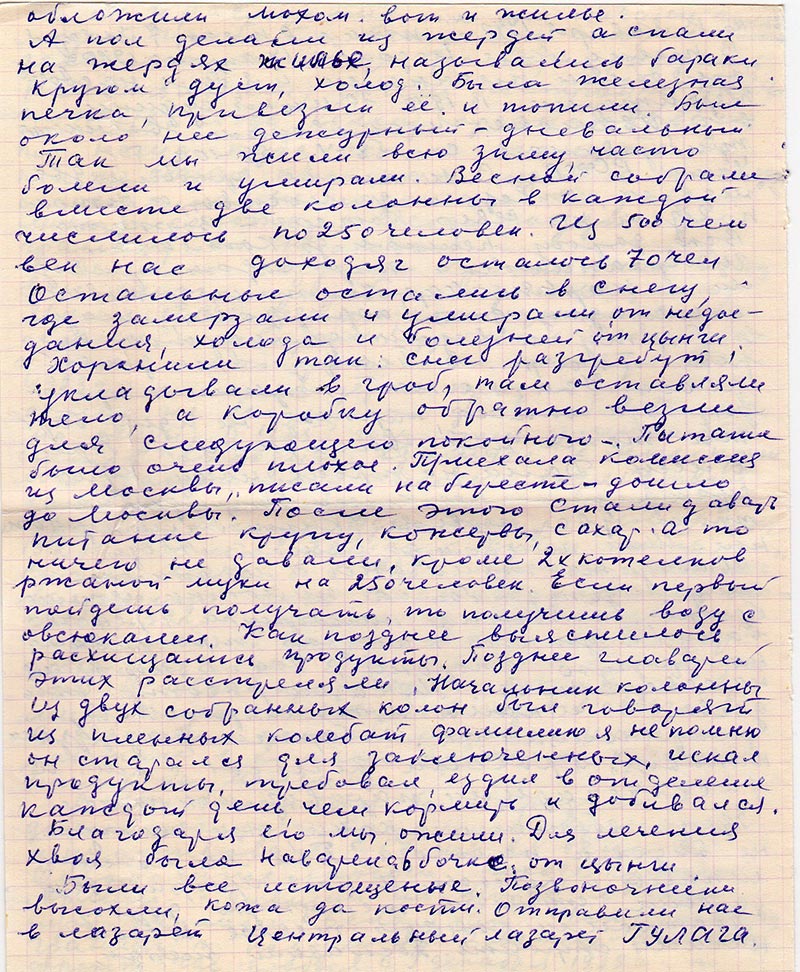 обложили мохом. вот и жилье.
А пол делали из жердей а спали
на жердях жилье, назывались бараки
Кругом дует, холод. Была железная
печка, привезли её. и топили. Был
около нее дежурный – дневальный
Так мы жили всю зиму, часто
болели и умирали. Весной собрали
вместе две колонны в каждой
числилось по 250 человек. Из 500 чело
век нас доходяг осталось 70 чел
Остальные остались в снегу,
где замерзали и умирали, от недое-
дания, холода и болезней, от цынги
Хоранили так: снег разгребут,
укладывали в гроб, там оставляли
тело, а коробку обратно везли
для следующего покойного –. Питание
было очень плохое. Приехала комиссия
из Москвы, писали на бересте – дошло
до Москвы. После этого стали давать
питание крупу, консервы, сахар. а то
ничего не давали, кроме 2х котелков
ржаной муки на 250 человек. Если первый
пойдешь получать, то получишь воду с
овсюками. Как позднее выяснилось
расхищались продукты. Позднее главарей
этих расстреляли. Начальник колонны
из двух собранных колон был говорят
из пленных комбат фамилию я не помню
он старался для заключенных, искал
продукты, требовал, ездил в отделение
каждый день, чем кормить и добивался.
Благодаря его мы ожили. Для лечения
хвоя была наварена в бочке. от цынги
Были все истощеные. Позвоночники
высохли, кожа да кости. Отправили нас
в лазарет Центральный лазарет ГУЛАГа.